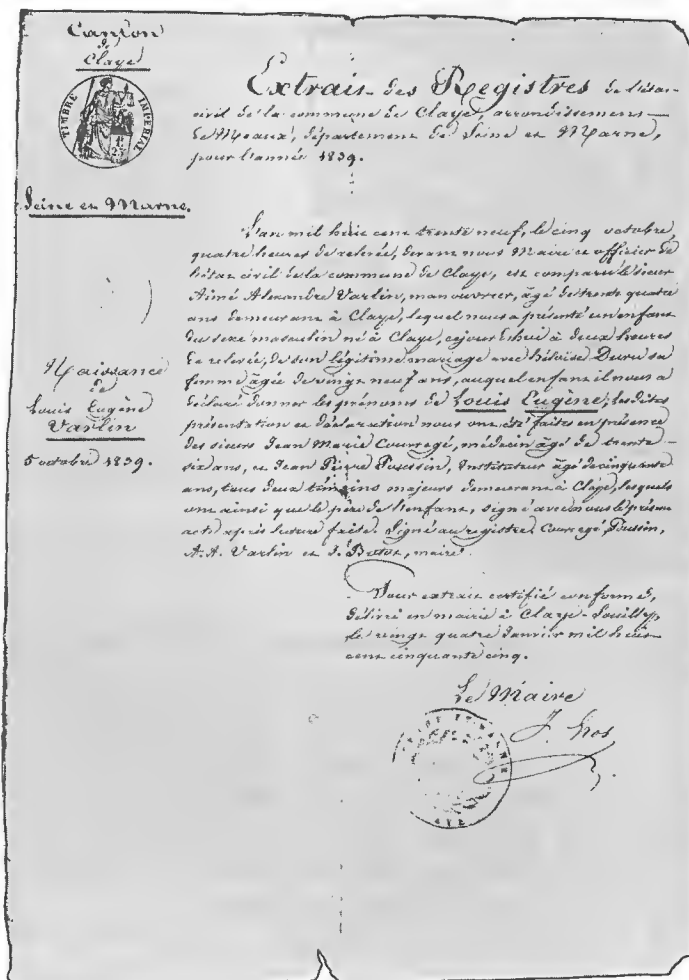 Canton
de
Claye
TIMBRE IMPÉRIAL
Seine et Marne.
Naissance
de
Louis Eugène
Varlin
5 octobre 1839.
Extrait des Registres de l'état
civil de la commune de Claye, arrondissement
de Meaux, département de Seine et Marne,
pour l'année 1839.
L'an mil huit cent trente neuf, le cinq octobre,
quatre heures de relevée, devant nous Maire et officier de
l'état civil de la commune de Claye, est comparu le sieur
Aimé Alexandre Varlin, manouvrier, âgé de trente quatre
ans demeurant à Claye, lequel nous a présenté un enfant
du sexe masculin né à Claye, cejourd'hui à deux heures
de relevée, de son légitime mariage avec héloïse Duru sa
femme âgée de vingt neuf ans, auquel enfant il nous a
déclaré donner les prénoms de Louis Eugène; lesdites
présentation et déclaration nous ont été faites en présence
des sieurs Jean Marie Courregé, médecin âgé de trente
six ans, et Jean Pierre Poussin, Instituteur âgé de cinquante
ans, tous deux témoins majeurs demeurant à Claye, lesquels
ont ainsi que le père de l'enfant, signé avec nous le présent
acte après lecture faite. Signé au registre: Courregé, Poussin,
A. A. Varlin et maire.
Pour extrait certifié conforme,
délivré en mairie à Claye-Souilly,
le vingt quatre Janvier mil huit
cent cinquante cinq.
Le Maire